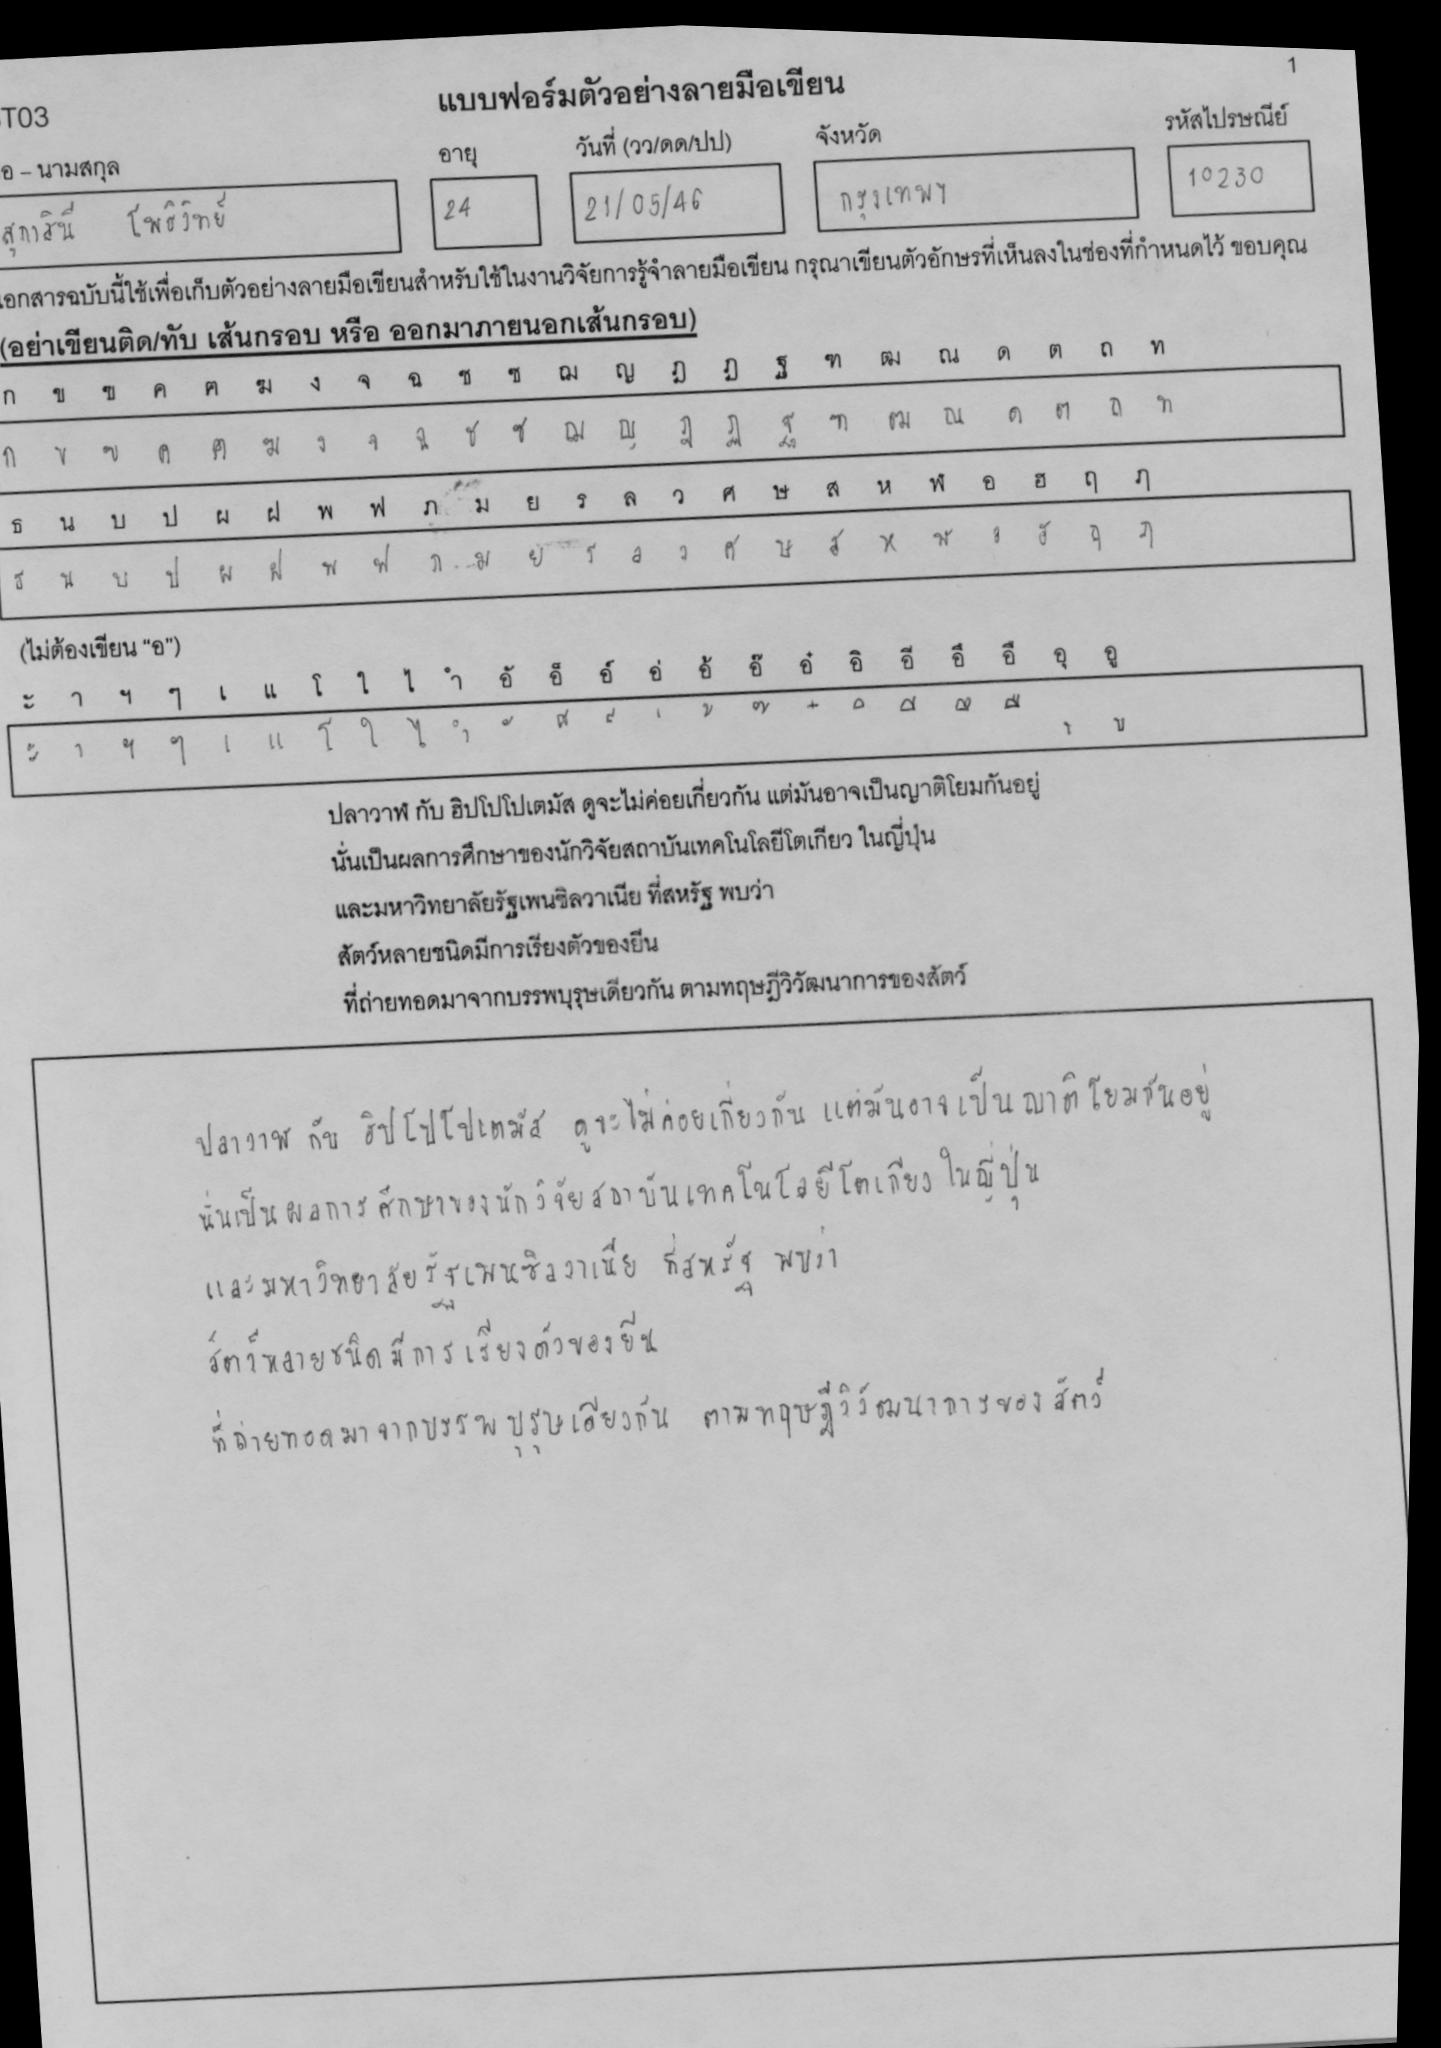 1
แบบฟอร์มตัวอย่างลายมือเขียน
T03
อ – นามสกุล อายุ วันที่ (วว/ดด/ปป) จังหวัด รหัสไปรษณีย์
สุภาสินี โพธิวิทย์ 24 21/05/46 กรุงเทพฯ 10230
เอกสารฉบับนี้ใช้เพื่อเก็บตัวอย่างลายมือเขียนสำหรับใช้ในงานวิจัยการรู้จำลายมือเขียน กรุณาเขียนตัวอักษรที่เห็นลงในช่องที่กำหนดไว้ ขอบคุณ
(อย่าเขียนติด/ทับ เส้นกรอบ หรือ ออกมาภายนอกเส้นกรอบ)
ก ข ฃ ค ฅ ฆ ง จ ฉ ช ซ ฌ ญ ฎ ฏ ฐ ฑ ฒ ณ ด ต ถ ท
ก ข ฃ ค ฅ ฆ ง จ ฉ ช ซ ฌ ญ ฎ ฏ ฐ ฑ ฒ ณ ด ต ถ ท
ธ น บ ป ผ ฝ พ ฟ ภ ม ย ร ล ว ศ ษ ส ห ฬ อ ฮ ฤ ฦ
ธ น บ ป ผ ฝ พ ฟ ภ ม ย ร ล ว ศ ษ ส ห ฬ อ ฮ ฤ ฦ
(ไม่ต้องเขียน “อ”)
ะ า ฯ ๆ เ แ โ ใ ไ ำ อั อ็ อ์ อ่ อ้ อ๊ อ๋ อิ อี อึ อื อุ อู
ะ า ฯ ๆ เ แ โ ใ ไ ำ ั ็ ์ ่ ้ ๊ ๋ ิ ี ึ ื ุ ู
ปลาวาฬ กับ ฮิปโปโปเตมัส ดูจะไม่ค่อยเกี่ยวกัน แต่มันอาจเป็นญาติโยมกันอยู่
นั่นเป็นผลการศึกษาของนักวิจัยสถาบันเทคโนโลยีโตเกียว ในญี่ปุ่น
และมหาวิทยาลัยรัฐเพนซิลวาเนีย ที่สหรัฐ พบว่า
สัตว์หลายชนิดมีการเรียงตัวของยีน
ที่ถ่ายทอดมาจากบรรพบุรุษเดียวกัน ตามทฤษฎีวิวัฒนาการของสัตว์
ปลาวาฬ กับ ฮิปโปโปเตมัส ดูจะไม่ค่อยเกี่ยวกัน แต่มันอาจเป็นญาติโยมกันอยู่
นั่นเป็นผลการศึกษาของนักวิจัยสถาบันเทคโนโลยีโตเกียว ในญี่ปุ่น
และมหาวิทยาลัยรัฐเพนซิลวาเนีย ที่สหรัฐ พบว่า
สัตว์หลายชนิดมีการเรียงตัวของยีน
ที่ถ่ายทอดมาจากบรรพบุรุษเดียวกัน ตามทฤษฎีวิวัฒนาการของสัตว์